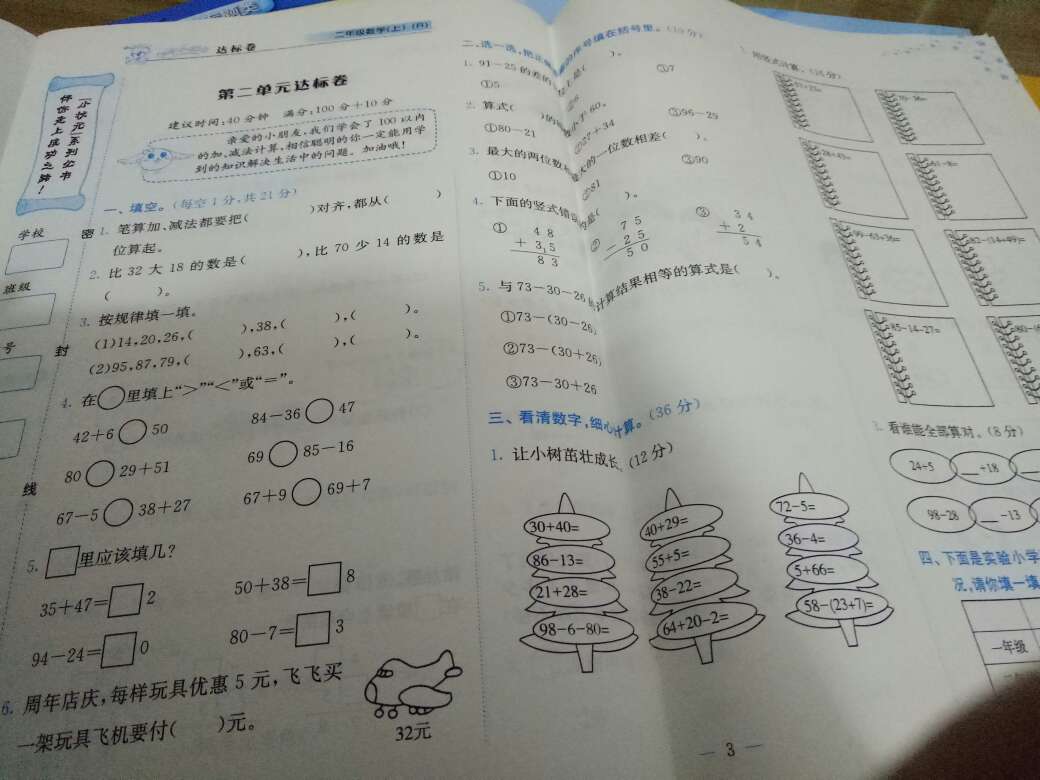 达标卷
二年级数学(上) (R)
“小状元”系列丛书
伴你走上成功之路!
学校
班级
号
密
封
线
第二单元达标卷
建议时间:40分钟 满分:100分+10分
亲爱的小朋友,我们学会了100以内
的加、减法计算,相信聪明的你一定能用学
到的知识解决生活中的问题。加油哦!
一、填空。(每空1分,共21分)
1. 笔算加、减法都要把( )对齐,都从( )
位算起。
2. 比32大18的数是( ),比70少14的数是
( )。
3. 按规律填一填。
(1)14,20,26,( ),38,( ),( )。
(2)95,87,79,( ),63,( ),( )。
4. 在○里填上“>”“<”或“=”。
42+6○50 84-36○47
80○29+51 69○85-16
67-5○38+27 67+9○69+7
5. □里应该填几?
35+47=□2 50+38=□8
94-24=□0 80-7=□3
6. 周年店庆,每样玩具优惠5元,飞飞买
一架玩具飞机要付( )元。
32元
二、选一选,把正确 的序号填在括号里。(10分)
1. 91-25的差的 位上是( )。
①5 ②6 ③7
2. 算式( )的 小于60。
①80-21 ②27+34 ③96-25
3. 最大的两位数 最大的一位数相差( )。
①10 ②81 ③90
4. 下面的竖式错误的是( )。
① 48 ② 75 ③ 34
+35 -25 +2
83 50 54
5. 与73-30-26 计算结果相等的算式是( )。
①73-(30-26)
②73-(30+26)
③73-30+26
三、看清数字,细心计算。(36分)
1. 让小树茁壮成长。(12分)
30+40= 40+29= 72-5=
86-13= 55+5= 36-4=
21+28= 38-22= 5+66=
98-6-80= 64+20-2= 58-(23+7)=
3
用竖式计算。(16分)
99-63+36= 82-(14+49)=
85-14-27=
3. 看谁能全部算对。(8分)
24+5 __+18
98-28 __-13
四、下面是实验小学
况,请你填一填
一年级